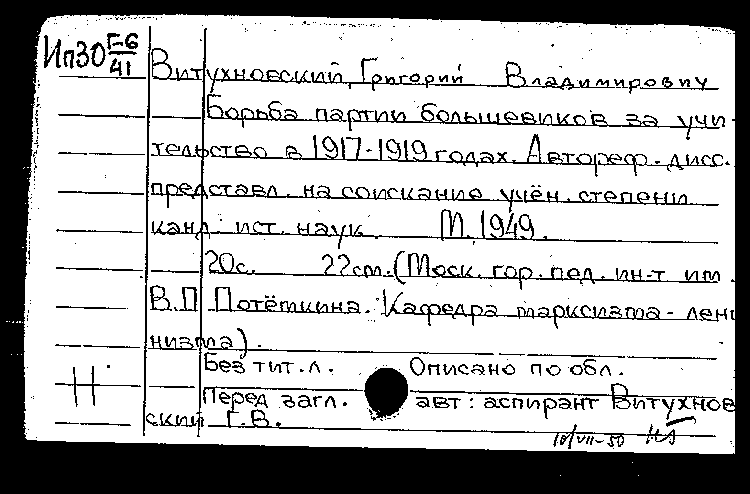 Ип30 Г-6/41
Витухновский, Григорий Владимирович
Борьба партии большевиков за учи-
тельство в 1917-1919 годах. Автореф. дисс.
представл. на соискание учён. степени
канд. ист. наук. М. 1949.
20с. 22см. (Моск. гор. пед. ин-т им.
В.П. Потёмкина. Кафедра марксизма-лени
низма).
Без тит. л. Описано по обл.
Н
Перед загл. авт: аспирант Витухнов
ский Г.В.
10/VII-50